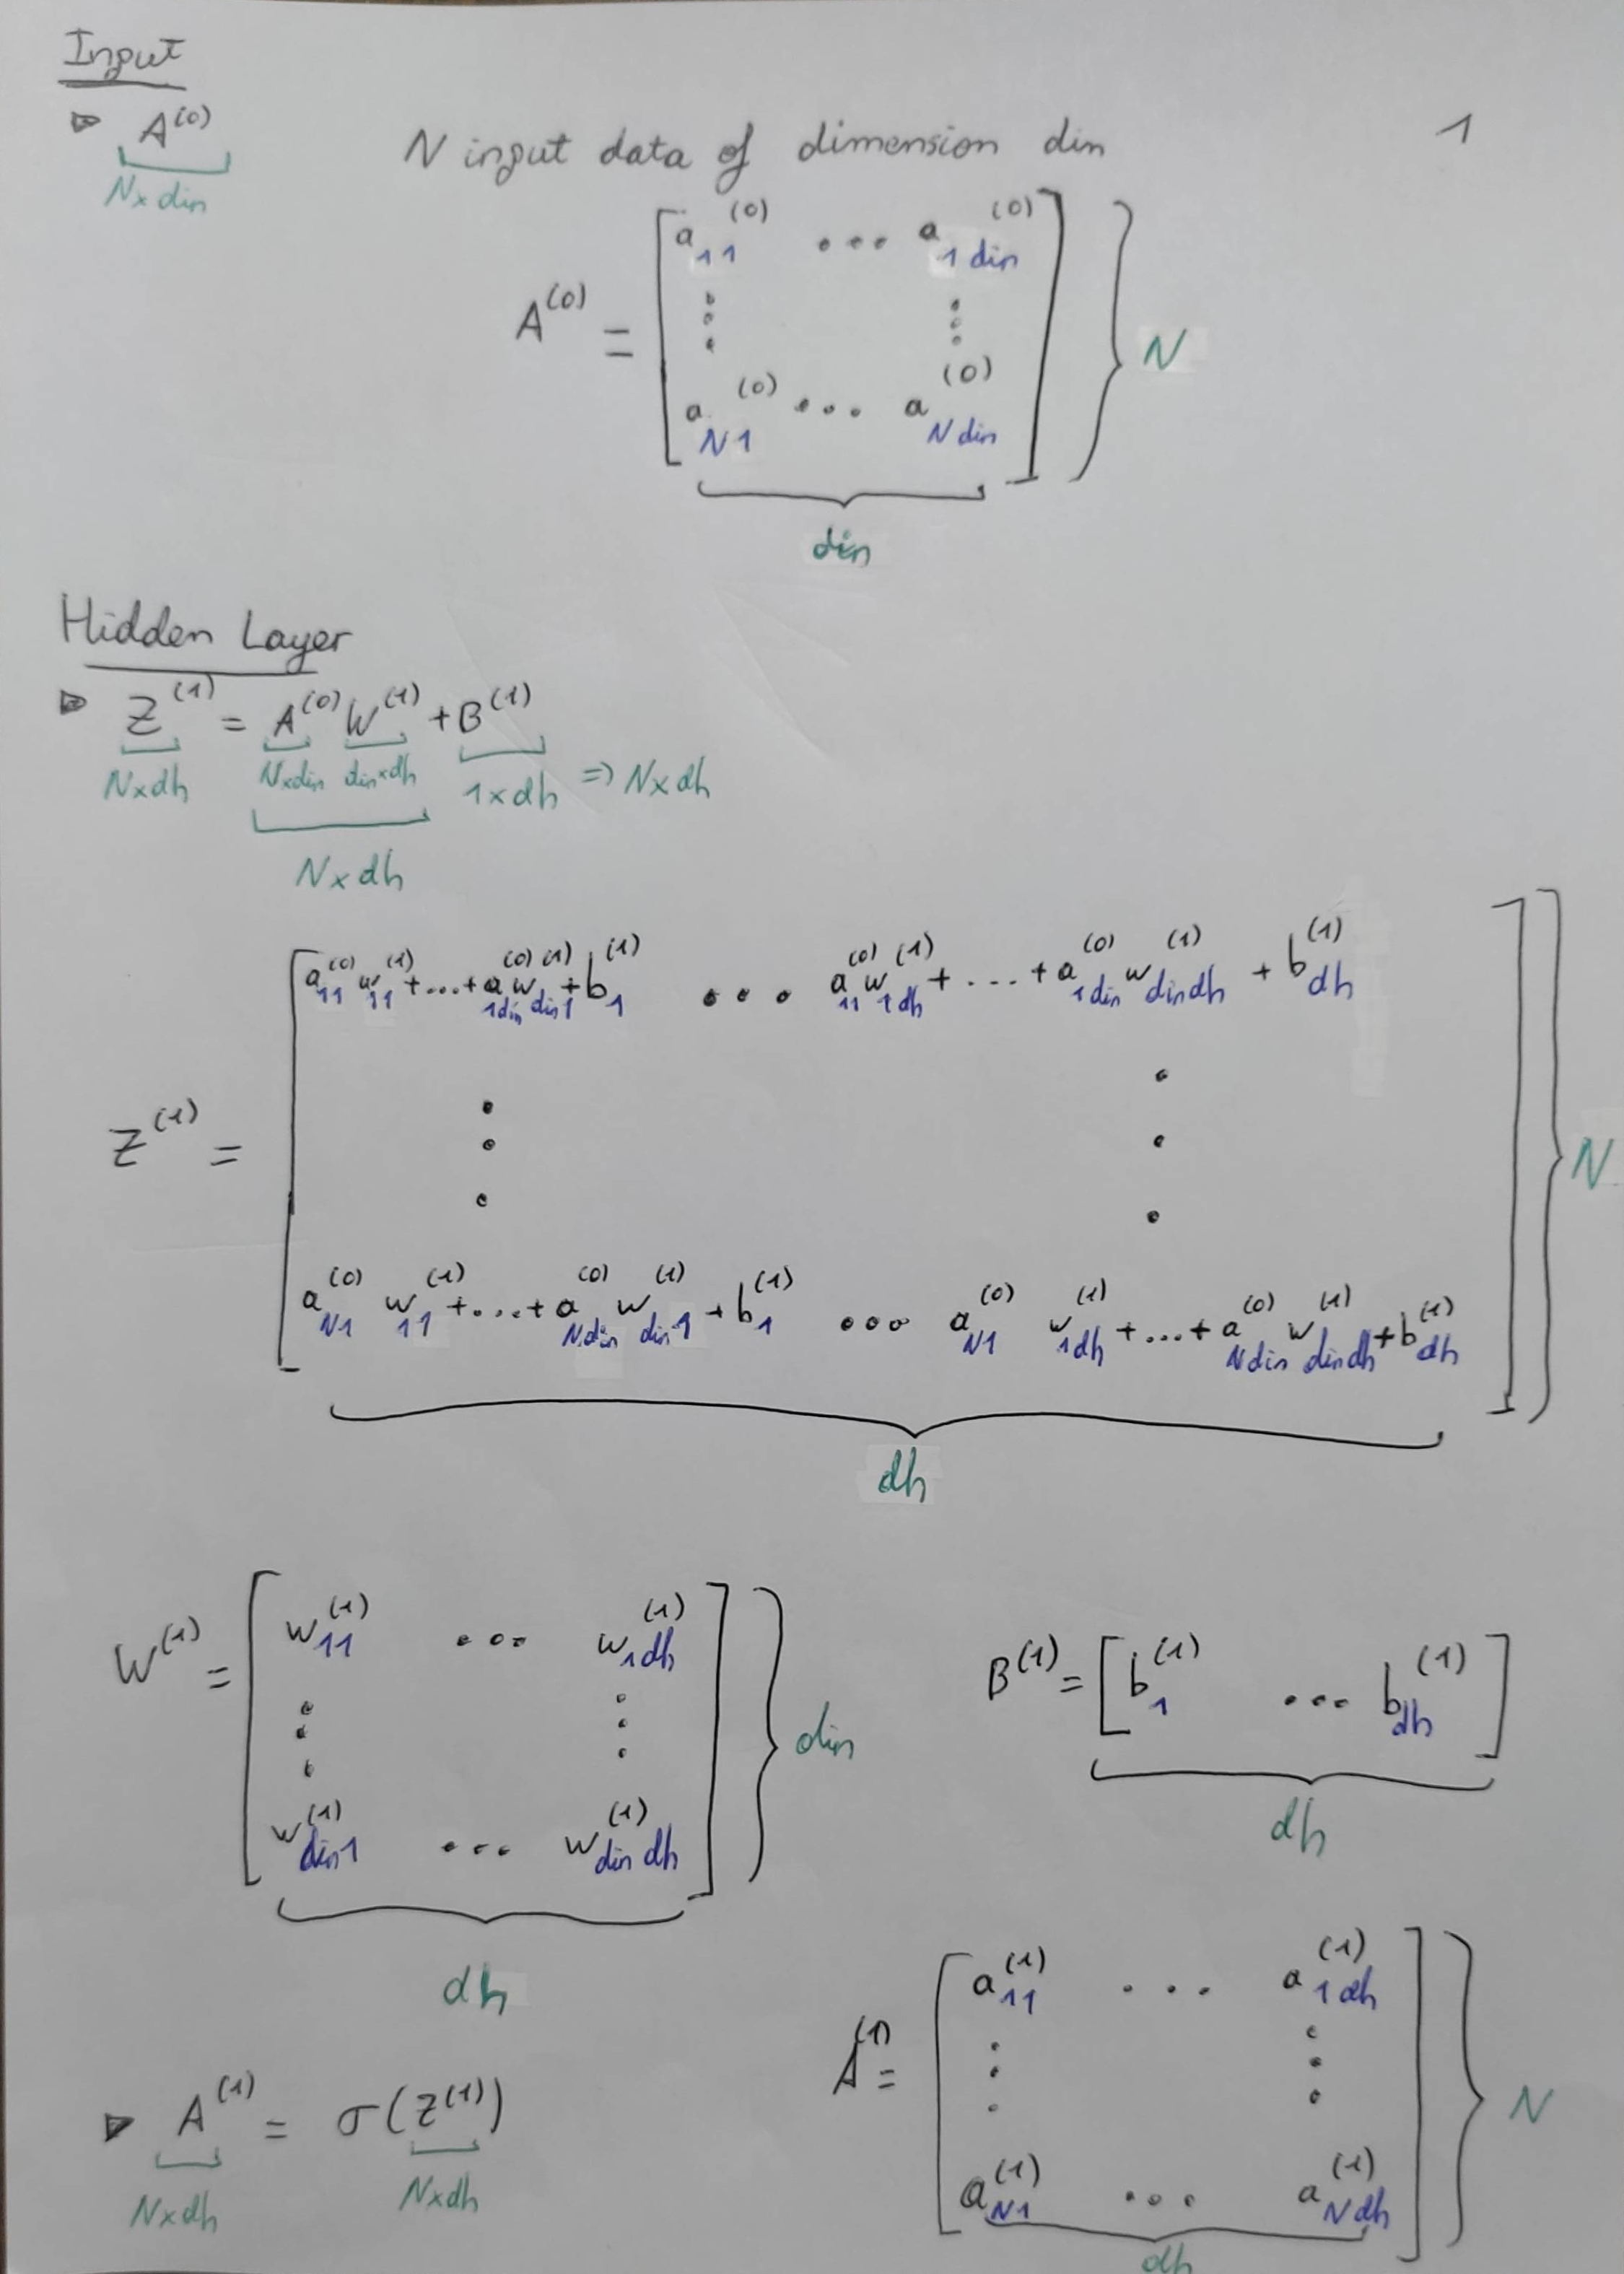 Input
▷ A^(0)
N input data of dimension din
1
N×din
A^(0) = [ a_11^(0) ... a_1din^(0)
⋮ ⋮
a_N1^(0) ... a_Ndin^(0) ] } N
din
Hidden Layer
▷ Z^(1) = A^(0) W^(1) + B^(1)
N×dh N×din din×dh 1×dh => N×dh
N×dh
[ a_11^(0) w_11^(1) + ... + a_1din^(0) w_din1^(1) + b_1^(1) ... a_11^(0) w_1dh^(1) + ... + a_1din^(0) w_dindh^(1) + b_dh^(1)
Z^(1) = ⋮ ⋮ } N
a_N1^(0) w_11^(1) + ... + a_Ndin^(0) w_din1^(1) + b_1^(1) ... a_N1^(0) w_1dh^(1) + ... + a_Ndin^(0) w_dindh^(1) + b_dh^(1) ]
dh
W^(1) = [ w_11^(1) ... w_1dh^(1)
⋮ ⋮
w_din1^(1) ... w_dindh^(1) ] } din
dh
B^(1) = [ b_1^(1) ... b_dh^(1) ]
dh
▷ A^(1) = σ(Z^(1))
N×dh N×dh
A^(1) = [ a_11^(1) ... a_1dh^(1)
⋮ ⋮
a_N1^(1) ... a_Ndh^(1) ] } N
dh